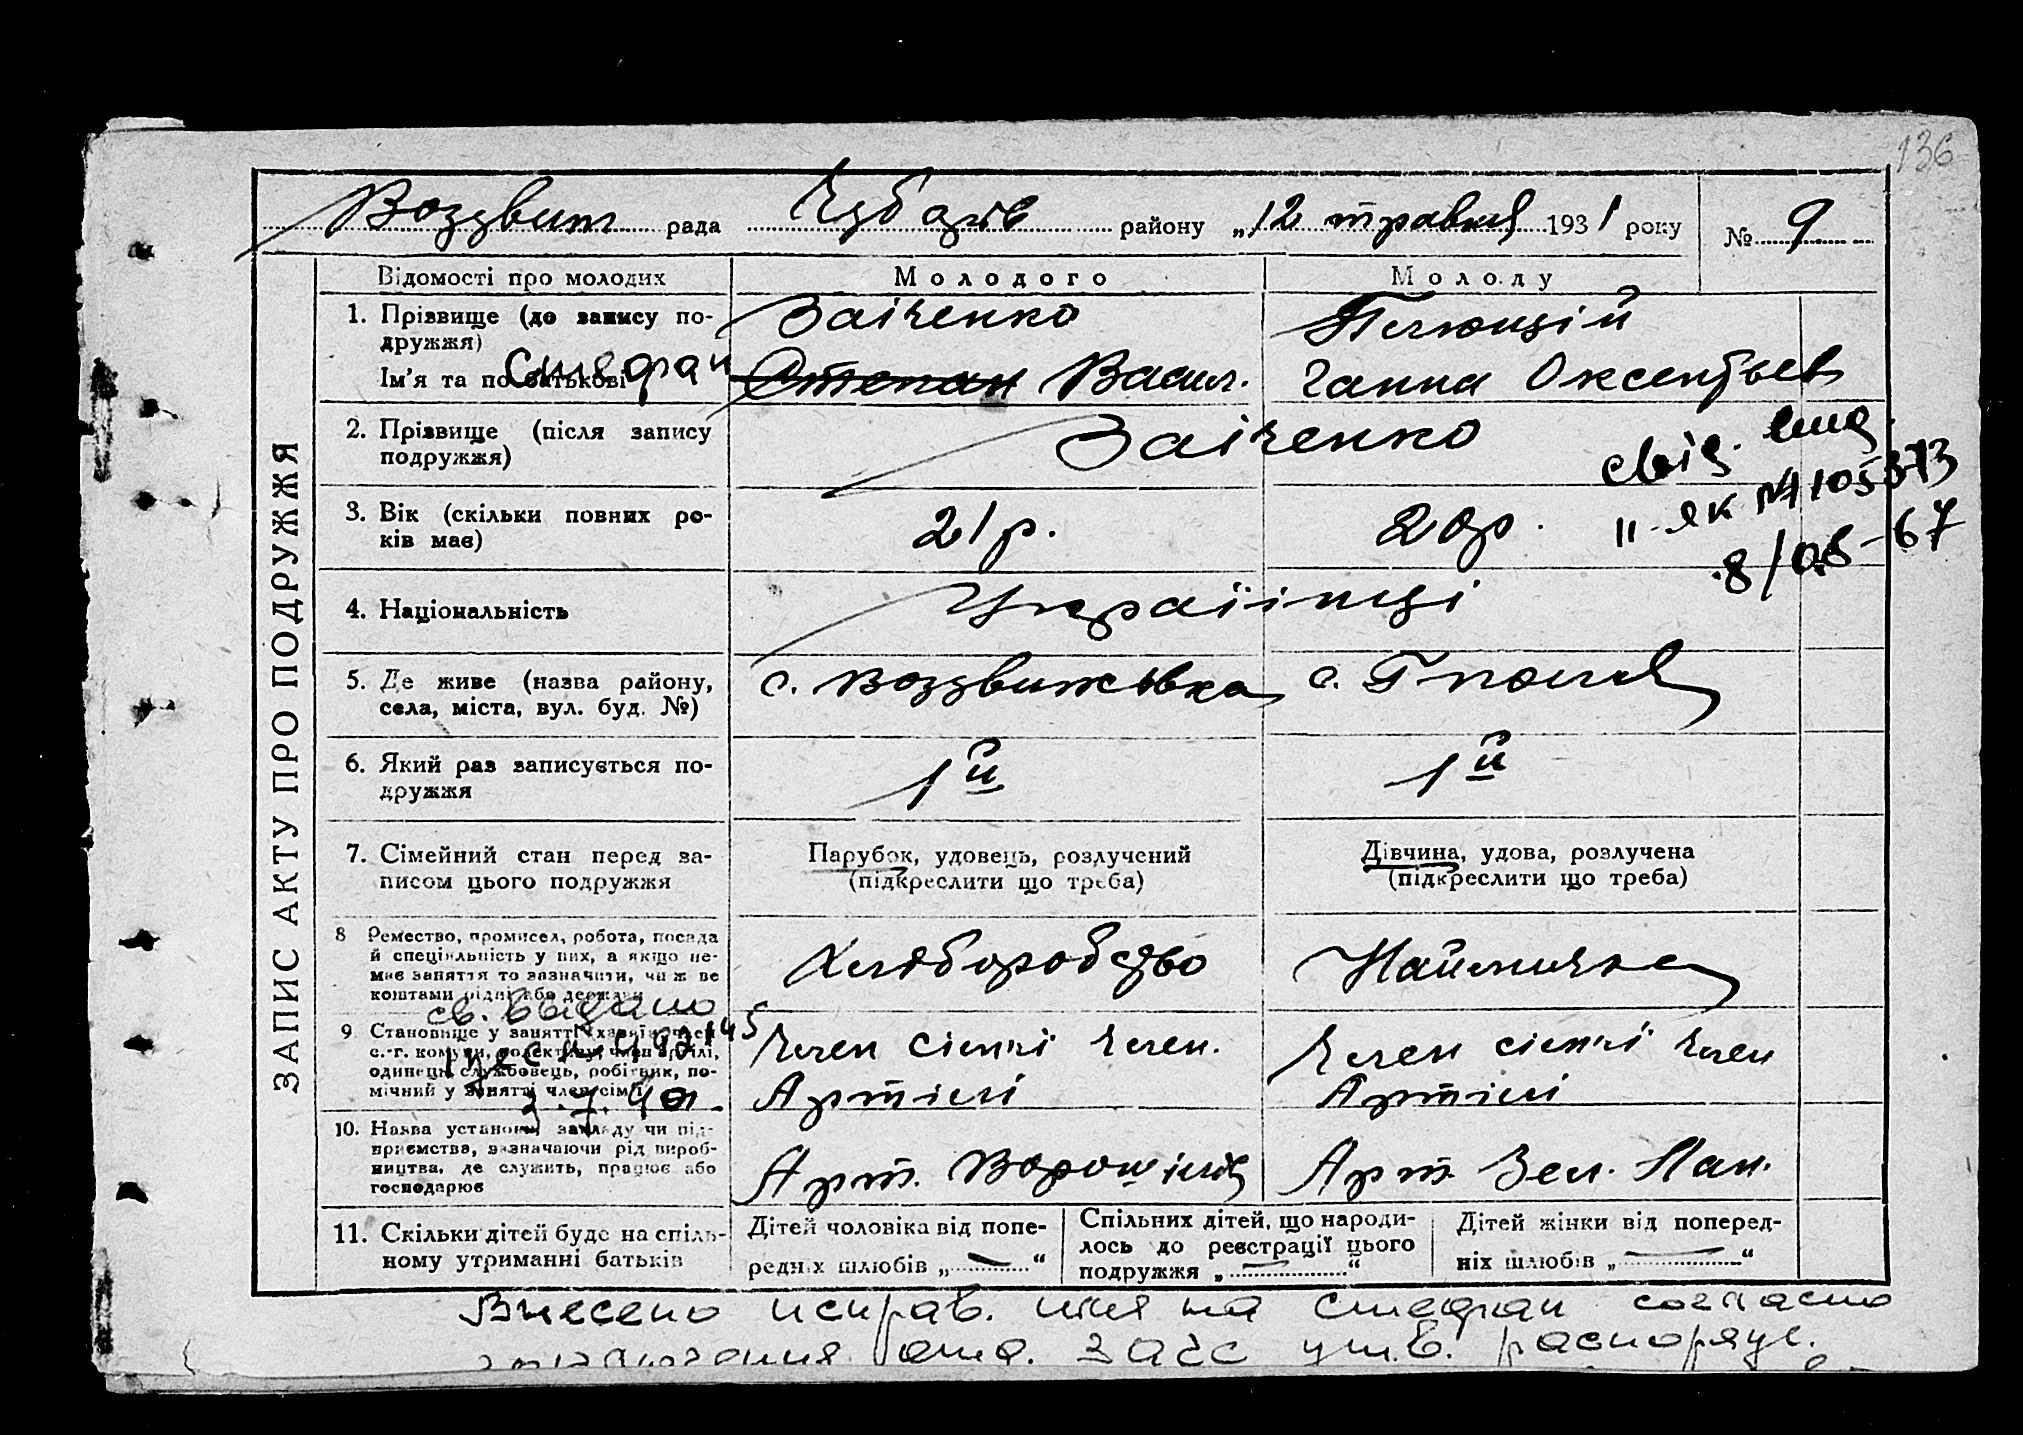 136
Воздвиж рада Чубарів району „12 травня 1931 року № 9
ЗАПИС АКТУ ПРО ПОДРУЖЖЯ
Відомості про молодих Молодого Молоду
1. Прізвище (до запису подружжя) Заіченко
Ім'я та по батькові Стефан Степан Васил. Ганна Оксентьев
2. Прізвище (після запису подружжя) Заіченко
свід.
II-ЯК № 105373
8/08-67
3. Вік (скільки повних років має) 21р. 20р.
4. Національність Україінці
5. Де живе (назва району, села, міста, вул. буд. №) с. Воздвижівка с.
6. Який раз записується подружжя 1й 1й
7. Сімейний стан перед записом цього подружжя Парубок, удовець, розлучений (підкреслити що треба) Дівчина, удова, розлучена (підкреслити що треба)
8 Ремество, промисел, робота, посада й спеціяльність у них, а якщо немає заняття то зазначити, чи ж ве коштами рідні або держави Хліборобство Наймичка
св. выдано
9 Становище у занятті член сім'ї член. Артілі член сім'ї член Артілі
3.7.90.
10. Назва установи, закладу чи підприємства, зазначаючи рід виробництва, де служить, працює або господарює Арт. Ворошілів Арт. Зел. Лан.
11. Скільки дітей буде на спільному утриманні батьків Дітей чоловіка від попередніх шлюбів „—“ Спільних дітей, що народилось до реєстрації цього подружжя „—“ Дітей жінки від попередніх шлюбів „—“
Внесено исправ. имя на Стефан согласно
заключения отд. ЗАГС утв. распоряж.